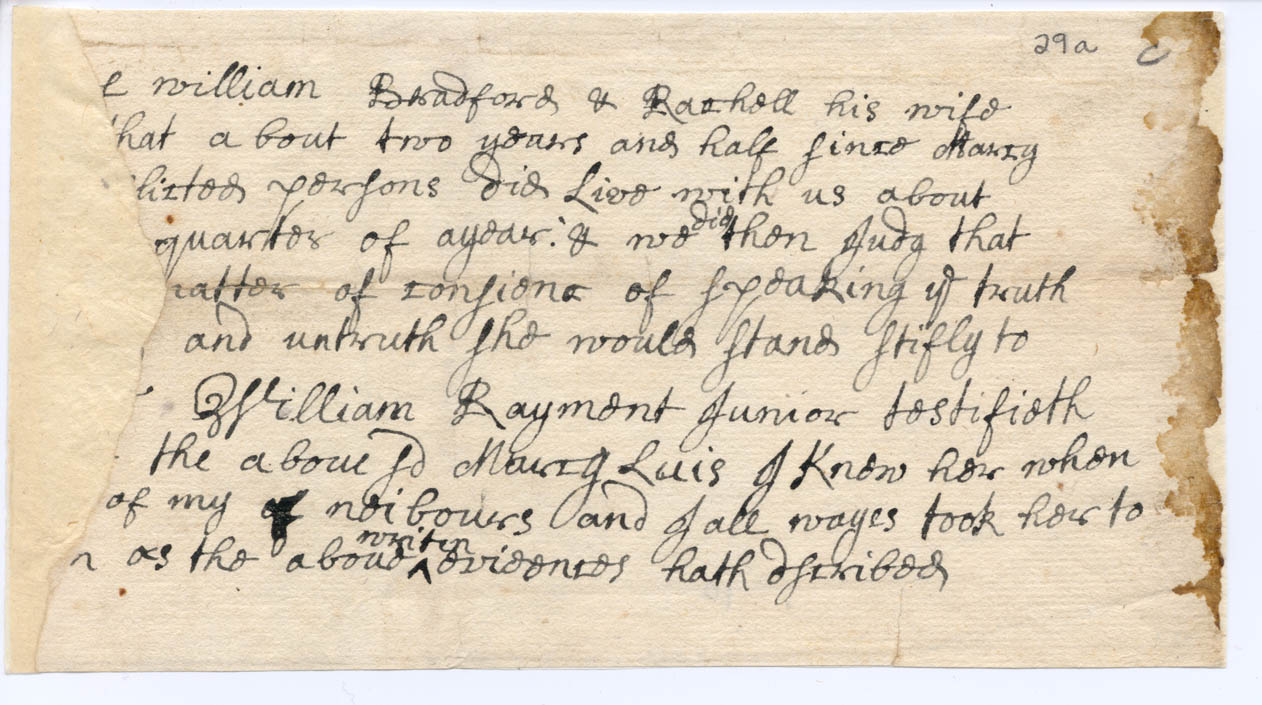 29a c
e william Bradford & Rachell his wife
that a bout two years and half since Marcy
flicted persons did Live with us about
quarter of ayear. & we did then Judg that
matter of consienc of speaking ye truth
and untruth she would stand stifly to
William Rayment Junior testifieth
the aboue sd Marcy Luis J Knew her when
of my neibours and J all wayes took her to
n as the aboue writen evidences hath dscribed